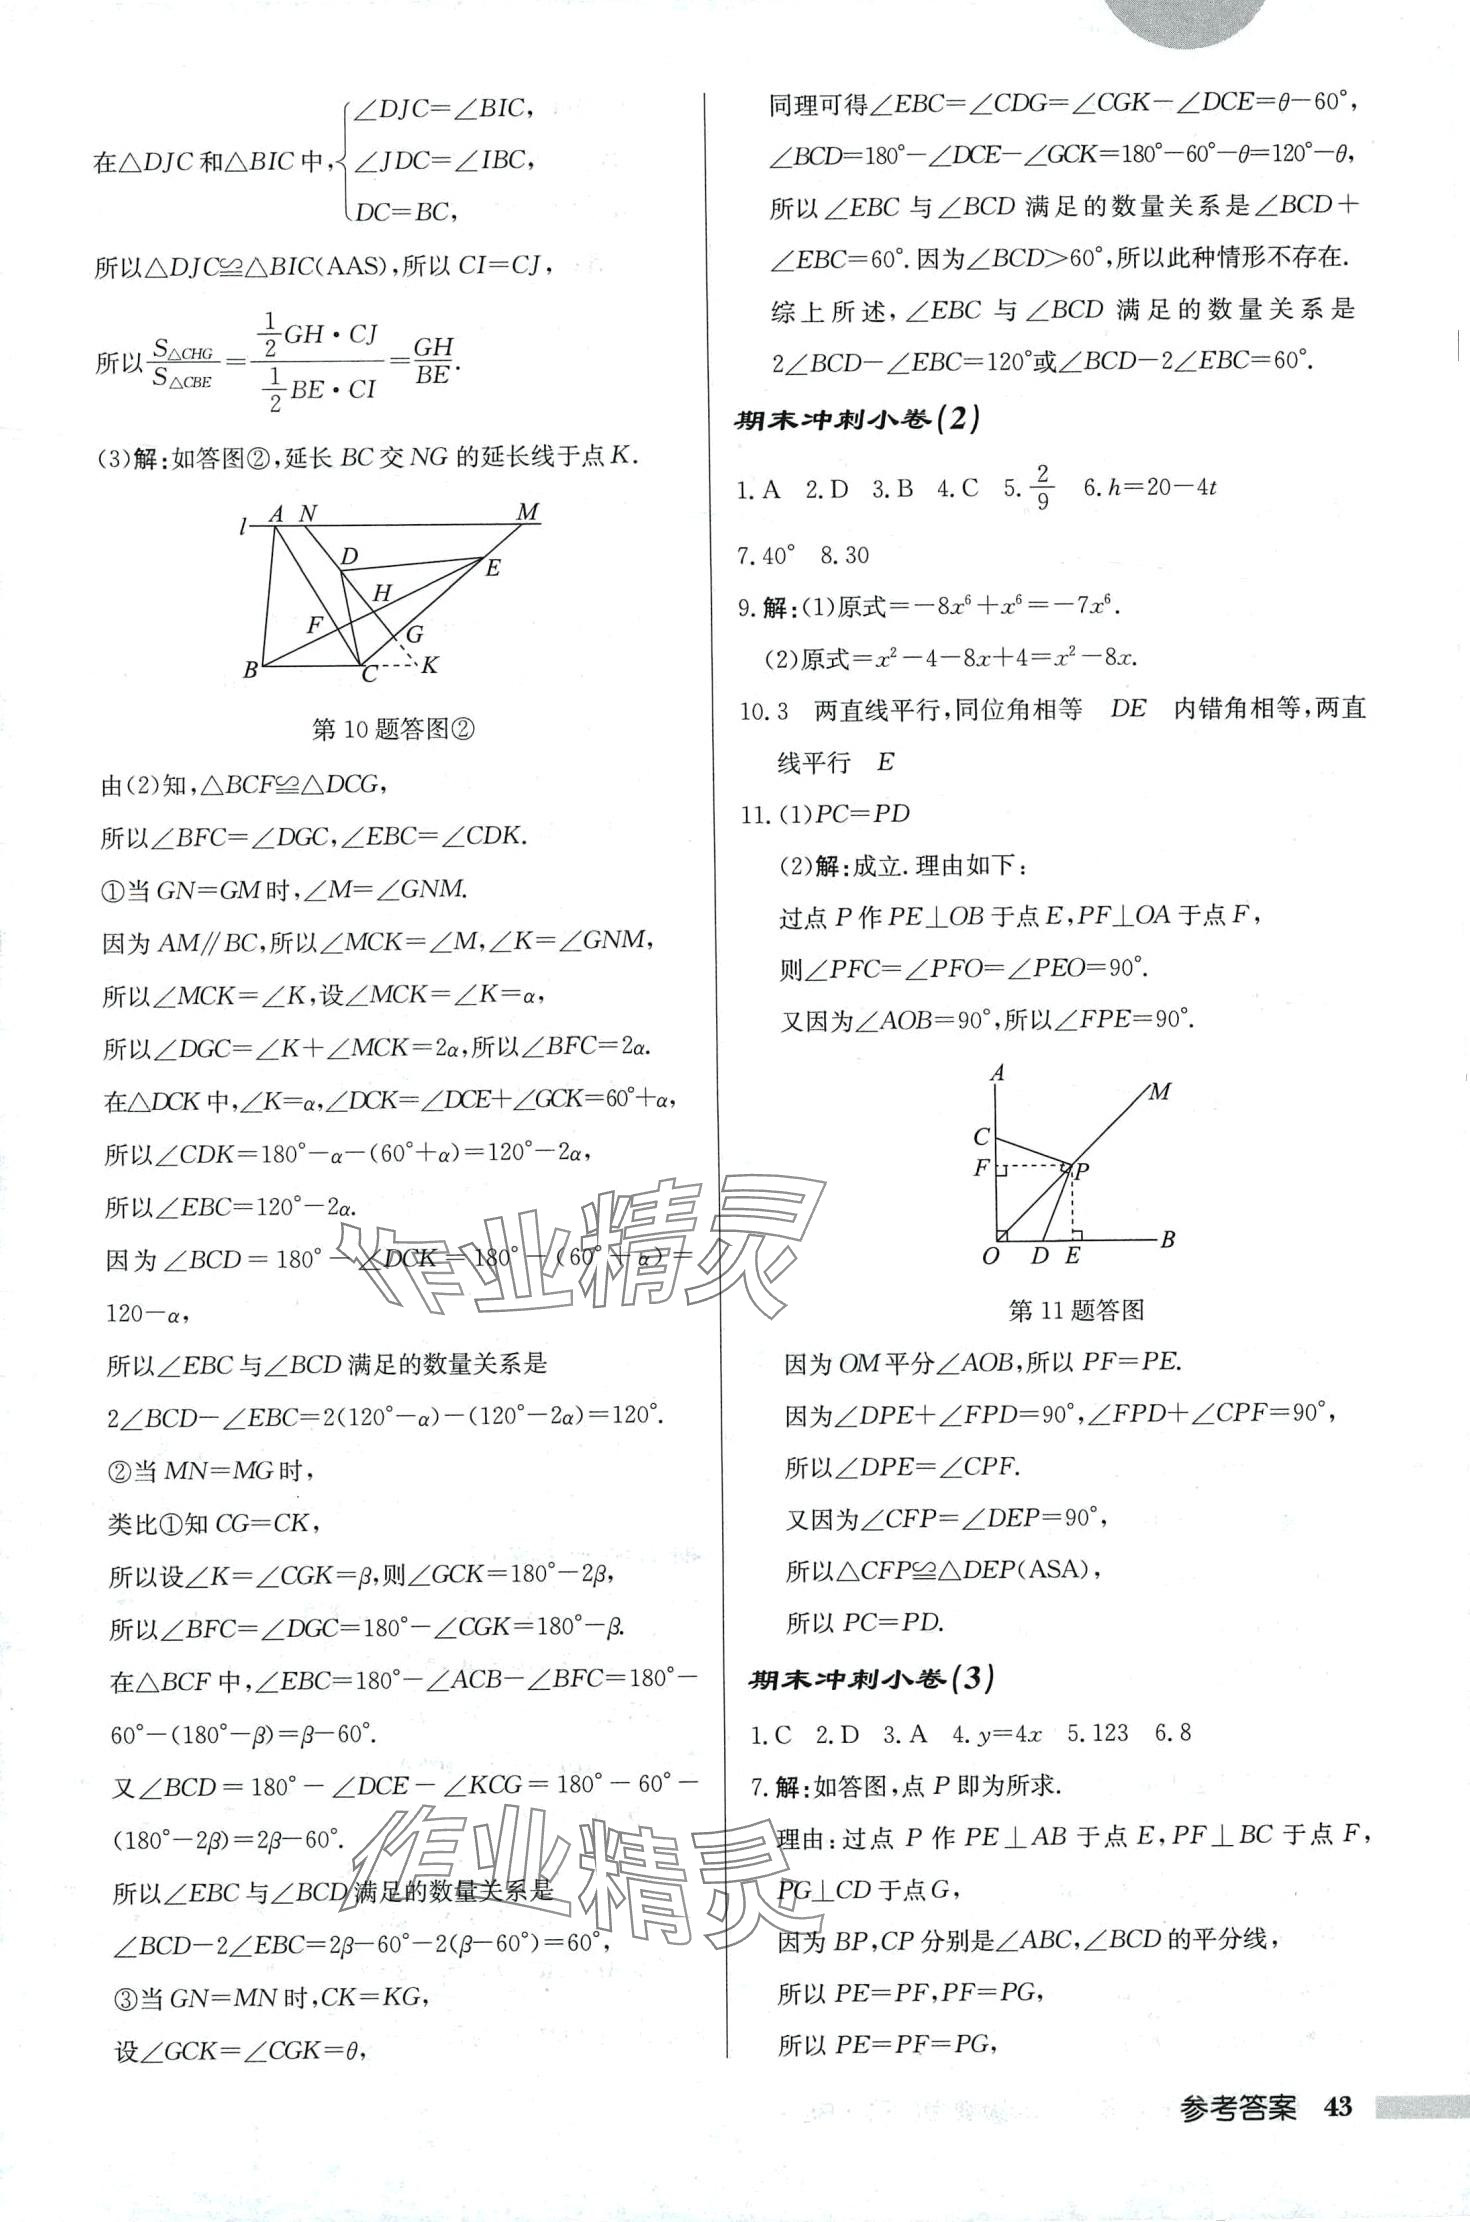 在△DJC和△BIC中,{∠DJC=∠BIC,
∠JDC=∠IBC,
DC=BC,
所以△DJC≌△BIC(AAS),所以CI=CJ,
所以S△CHG/S△CBE=(1/2 GH·CJ)/(1/2 BE·CI)=GH/BE.
(3)解:如答图②,延长BC交NG的延长线于点K.
l A N M
D
E
H
F
G
B C K
第10题答图②
由(2)知,△BCF≌△DCG,
所以∠BFC=∠DGC,∠EBC=∠CDK.
①当GN=GM时,∠M=∠GNM.
因为AM∥BC,所以∠MCK=∠M,∠K=∠GNM,
所以∠MCK=∠K,设∠MCK=∠K=α,
所以∠DGC=∠K+∠MCK=2α,所以∠BFC=2α.
在△DCK中,∠K=α,∠DCK=∠DCE+∠GCK=60°+α,
所以∠CDK=180°-α-(60°+α)=120°-2α,
所以∠EBC=120°-2α.
因为∠BCD=180°-∠DCK=180°-(60°+α)=
120-α,
所以∠EBC与∠BCD满足的数量关系是
2∠BCD-∠EBC=2(120°-α)-(120°-2α)=120°.
②当MN=MG时,
类比①知CG=CK,
所以设∠K=∠CGK=β,则∠GCK=180°-2β,
所以∠BFC=∠DGC=180°-∠CGK=180°-β.
在△BCF中,∠EBC=180°-∠ACB-∠BFC=180°-
60°-(180°-β)=β-60°.
又∠BCD=180°-∠DCE-∠KCG=180°-60°-
(180°-2β)=2β-60°.
所以∠EBC与∠BCD满足的数量关系是
∠BCD-2∠EBC=2β-60°-2(β-60°)=60°,
③当GN=MN时,CK=KG,
设∠GCK=∠CGK=θ,
同理可得∠EBC=∠CDG=∠CGK-∠DCE=θ-60°,
∠BCD=180°-∠DCE-∠GCK=180°-60°-θ=120°-θ,
所以∠EBC与∠BCD满足的数量关系是∠BCD+
∠EBC=60°.因为∠BCD>60°,所以此种情形不存在.
综上所述,∠EBC与∠BCD满足的数量关系是
2∠BCD-∠EBC=120°或∠BCD-2∠EBC=60°.
期末冲刺小卷(2)
1.A 2.D 3.B 4.C 5.2/9 6.h=20-4t
7.40° 8.30
9.解:(1)原式=-8x⁶+x⁶=-7x⁶.
(2)原式=x²-4-8x+4=x²-8x.
10.3 两直线平行,同位角相等 DE 内错角相等,两直
线平行 E
11.(1)PC=PD
(2)解:成立.理由如下:
过点P作PE⊥OB于点E,PF⊥OA于点F,
则∠PFC=∠PFO=∠PEO=90°.
又因为∠AOB=90°,所以∠FPE=90°.
A
M
C
F P
O D E B
第11题答图
因为OM平分∠AOB,所以PF=PE.
因为∠DPE+∠FPD=90°,∠FPD+∠CPF=90°,
所以∠DPE=∠CPF.
又因为∠CFP=∠DEP=90°,
所以△CFP≌△DEP(ASA),
所以PC=PD.
期末冲刺小卷(3)
1.C 2.D 3.A 4.y=4x 5.123 6.8
7.解:如答图,点P即为所求.
理由:过点P作PE⊥AB于点E,PF⊥BC于点F,
PG⊥CD于点G,
因为BP,CP分别是∠ABC,∠BCD的平分线,
所以PE=PF,PF=PG,
所以PE=PF=PG,
作业精灵
作业精灵
参考答案 43